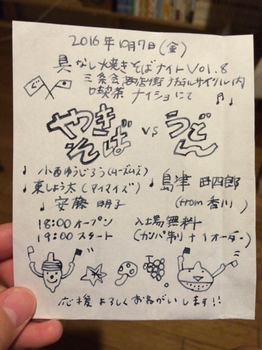 2016年10月7日(金)
具なし焼きそばナイトVol.8
三条会商店街 内
喫茶 ナイショにて
やきそば vs うどん
小西ゆうじろう
東しょう太(アイマイズ)
安藤 明子
島津 田四郎
(from 香川)
18:00 オープン
19:00 スタート
入場無料
(カンパ制+1オーダー)
応援よろしくおねがいします!!